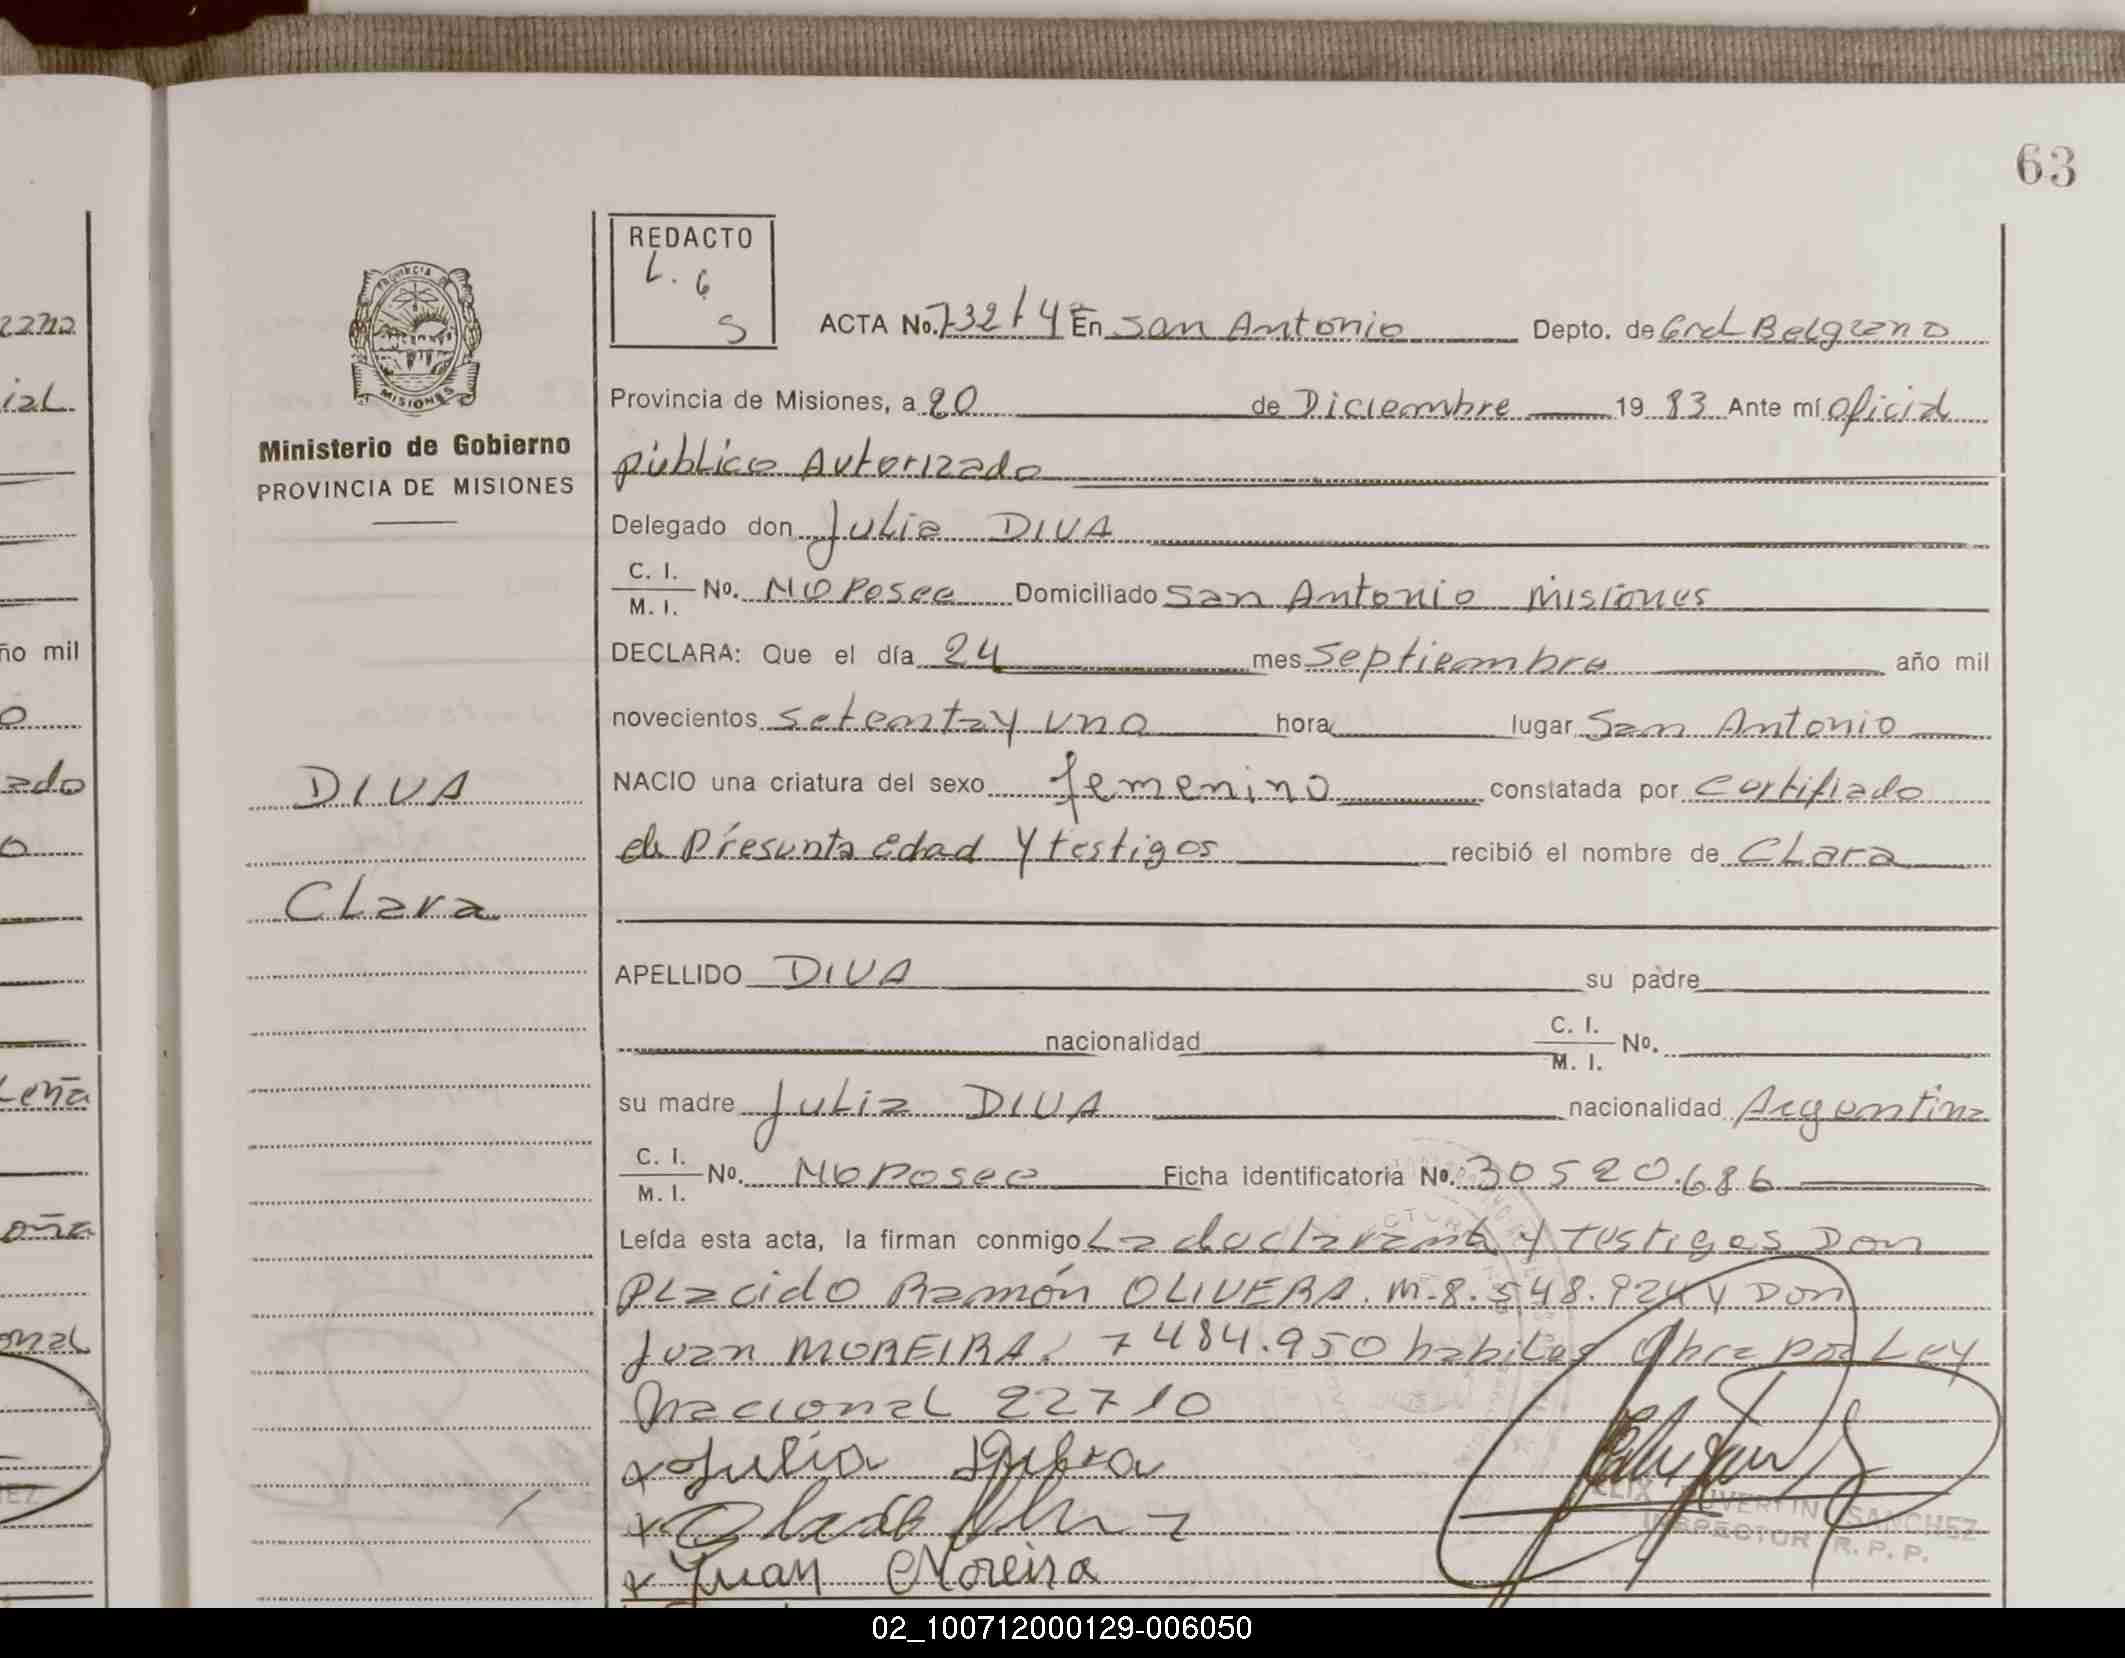 63
22712
ial
ño mil
o
ado
o
Leña
oña
onal
REDACTO
L. G
S
PROVINCIA DE
MISIONES
Ministerio de Gobierno
PROVINCIA DE MISIONES
DIVA
Clara
ACTA No. 732/4 En San Antonio Depto. de Gral Belgrano
Provincia de Misiones, a 20 de Diciembre 19 83 Ante mí oficial
público Autorizado
Delegado don Julia DIVA
C. I.
M. I. No. No Posee Domiciliado San Antonio Misiones
DECLARA: Que el día 24 mes Septiembre año mil
novecientos setenta y uno hora lugar San Antonio
NACIO una criatura del sexo femenino constatada por Certifiado
de Presunta edad y testigos recibió el nombre de Clara
APELLIDO DIVA su padre
nacionalidad C. I.
M. I. No.
su madre Julia DIVA nacionalidad Argentina
C. I.
M. I. No. No Posee Ficha identificatoria No. 30520.686
Leída esta acta, la firman conmigo La declarante y testigos Don
Placido Ramón OLIVERA. M. 8.548.924 y Don
Juan MOREIRA. 7484.950 habiles Obra por Ley
Nacional 22710
x Julia
x
x Juan Moreira
FELIX SANCHEZ
INSPECTOR R. P. P.
02_100712000129-006050